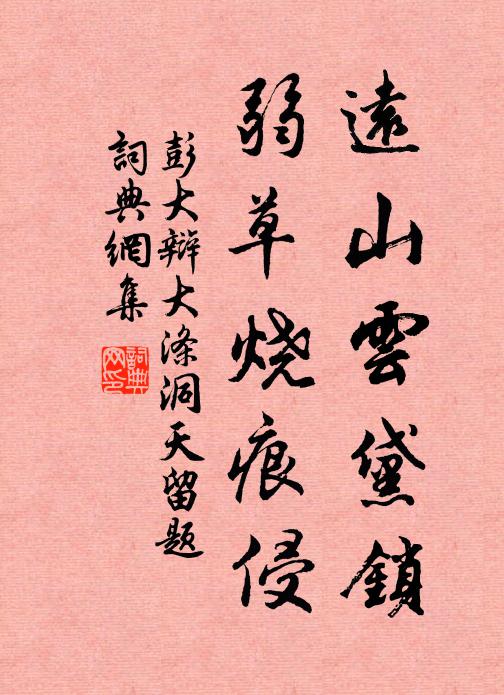 遠山雲黛鎖
弱草烧痕侵
彭大辯大滌洞天留题
詞典網集
詞典網印